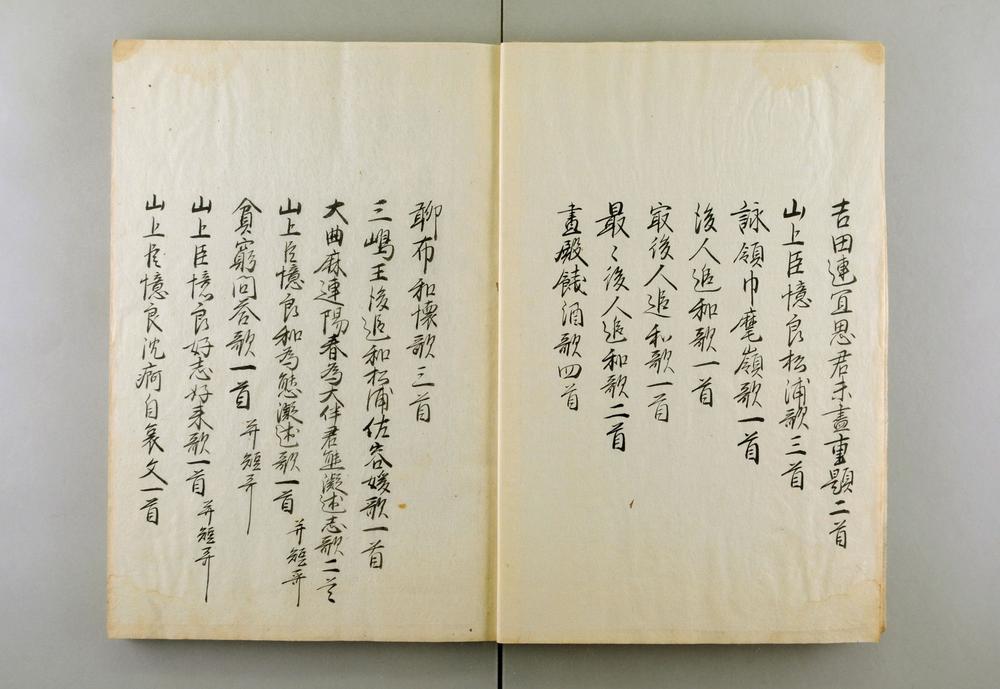 吉田連宜思君未盡重題二首
山上臣憶良松浦歌三首
詠領巾麾嶺歌一首
後人追和歌一首
最後人追和歌一首
最〻後人追和歌二首
書殿餞酒歌四首
聊布私懐歌三首
三嶋王後追和松浦佐容媛歌一首
大典麻連陽春為大伴君熊凝述志歌二首
山上臣憶良和為熊凝述歌一首 并短哥
貧窮問答歌一首 并短哥
山上臣憶良好志好来歌一首 并短哥
山上臣憶良沈痾自哀文一首